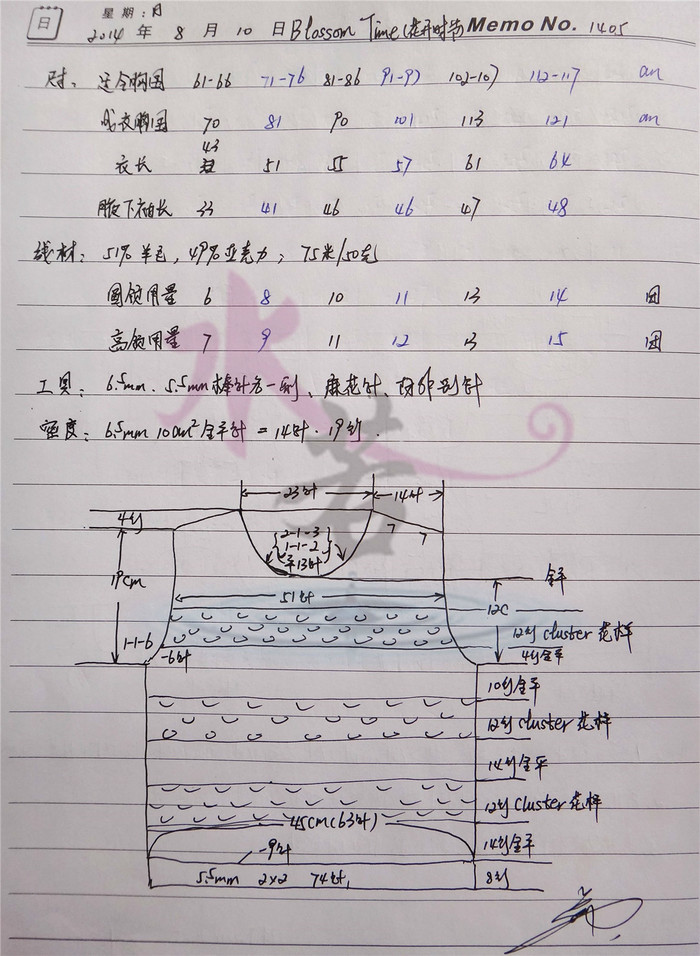 日 星期:日
2014 年 8 月 10 日 Blossom Time(花开时节) Memo No. 1405
尺寸: 适合胸围 61-66 71-76 81-86 91-97 102-107 112-117 cm
成衣胸围 70 81 90 101 113 121 cm
衣长 43 51 55 57 61 64
腋下袖长 33 41 46 46 47 48
线材: 51% 羊毛, 49% 亚克力; 75米/50克
圆领用量 6 8 10 11 13 14 团
高领用量 7 9 11 12 13 15 团
工具: 6.5mm. 5.5mm棒针各一副、麻花针、防卸别针
密度: 6.5mm 10cm² 全平针 = 14针·19行.
水若
23针 14针
4行
7 7
2-1-3
1-1-2
平13针
19cm
全平
51针
12C
12行 cluster 花样
1-1-6
-6针
4行全平
10行全平
12行 cluster 花样
14行全平
12行 cluster 花样
45cm(63针)
-9针
14行全平
5.5mm 2×2 74针,
8行